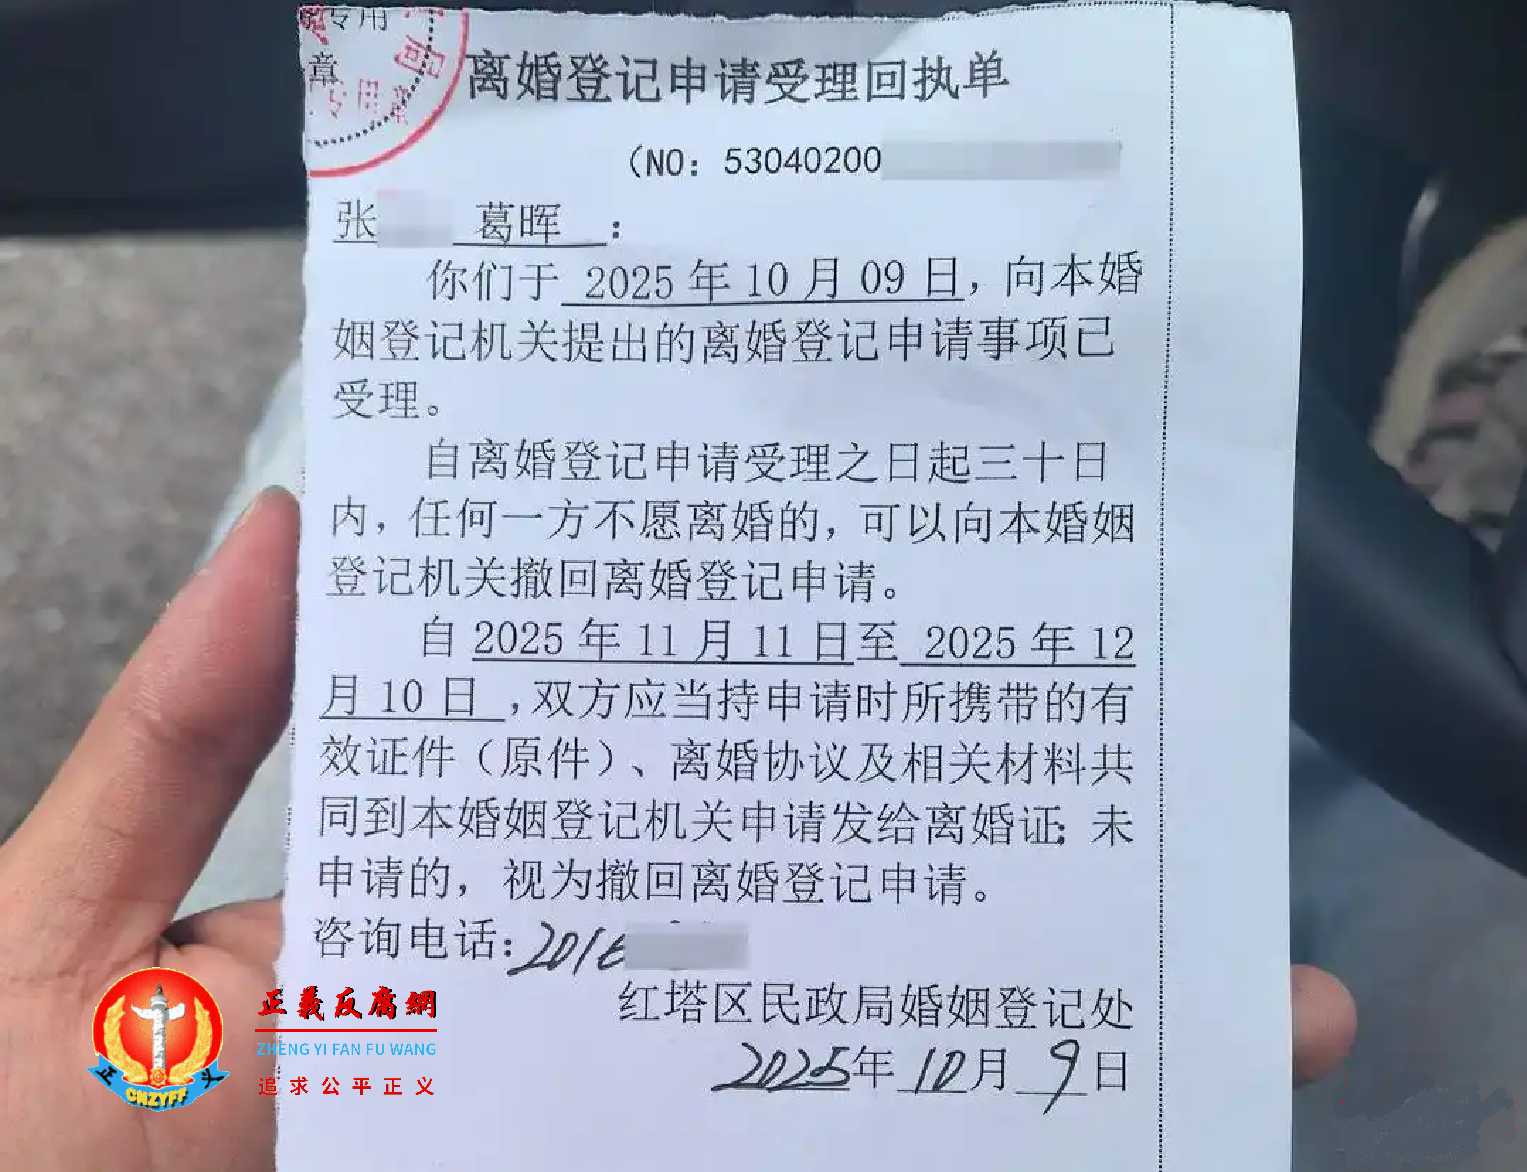 专用
章
局
专用章
离婚登记申请受理回执单
（NO：53040200
张 葛晖 ：
你们于 2025 年 10 月 09 日，向本婚
姻登记机关提出的离婚登记申请事项已
受理。
自离婚登记申请受理之日起三十日
内，任何一方不愿离婚的，可以向本婚姻
登记机关撤回离婚登记申请。
自 2025 年 11 月 11 日至 2025 年 12
月 10 日 ，双方应当持申请时所携带的有
效证件（原件）、离婚协议及相关材料共
同到本婚姻登记机关申请发给离婚证；未
申请的，视为撤回离婚登记申请。
咨询电话：2016
红塔区民政局婚姻登记处
2025年 10月 9日
正義反腐網
ZHENG YI FAN FU WANG
追求公平正义
正 义
CNZYFF